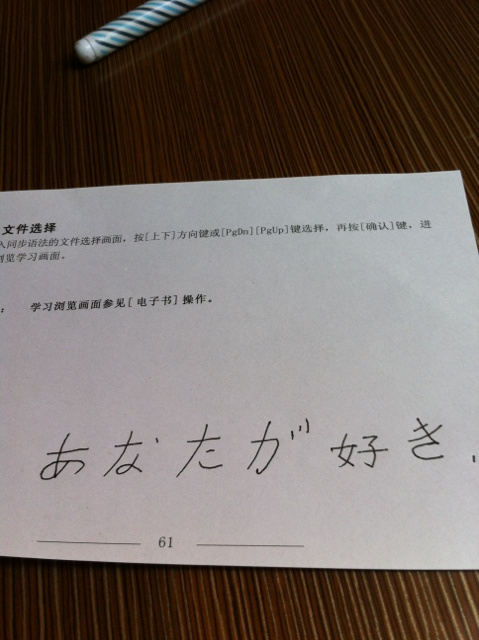 文件选择
入同步语法的文件选择画面，按[上下]方向键或[PgDn][PgUp]键选择，再按[确认]键，进
浏览学习画面。
： 学习浏览画面参见[ 电子书] 操作。
あなたが好き
61